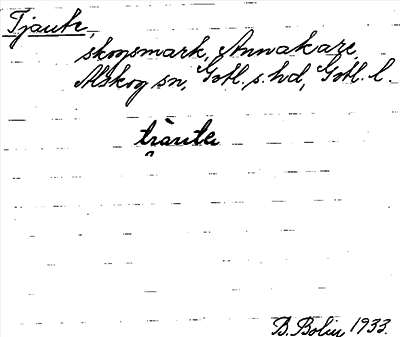 Tjaute,
skogsmark, Annakare,
Alskog sn, Gotl. s. hd, Gotl. l.
B. Bolin 1933.